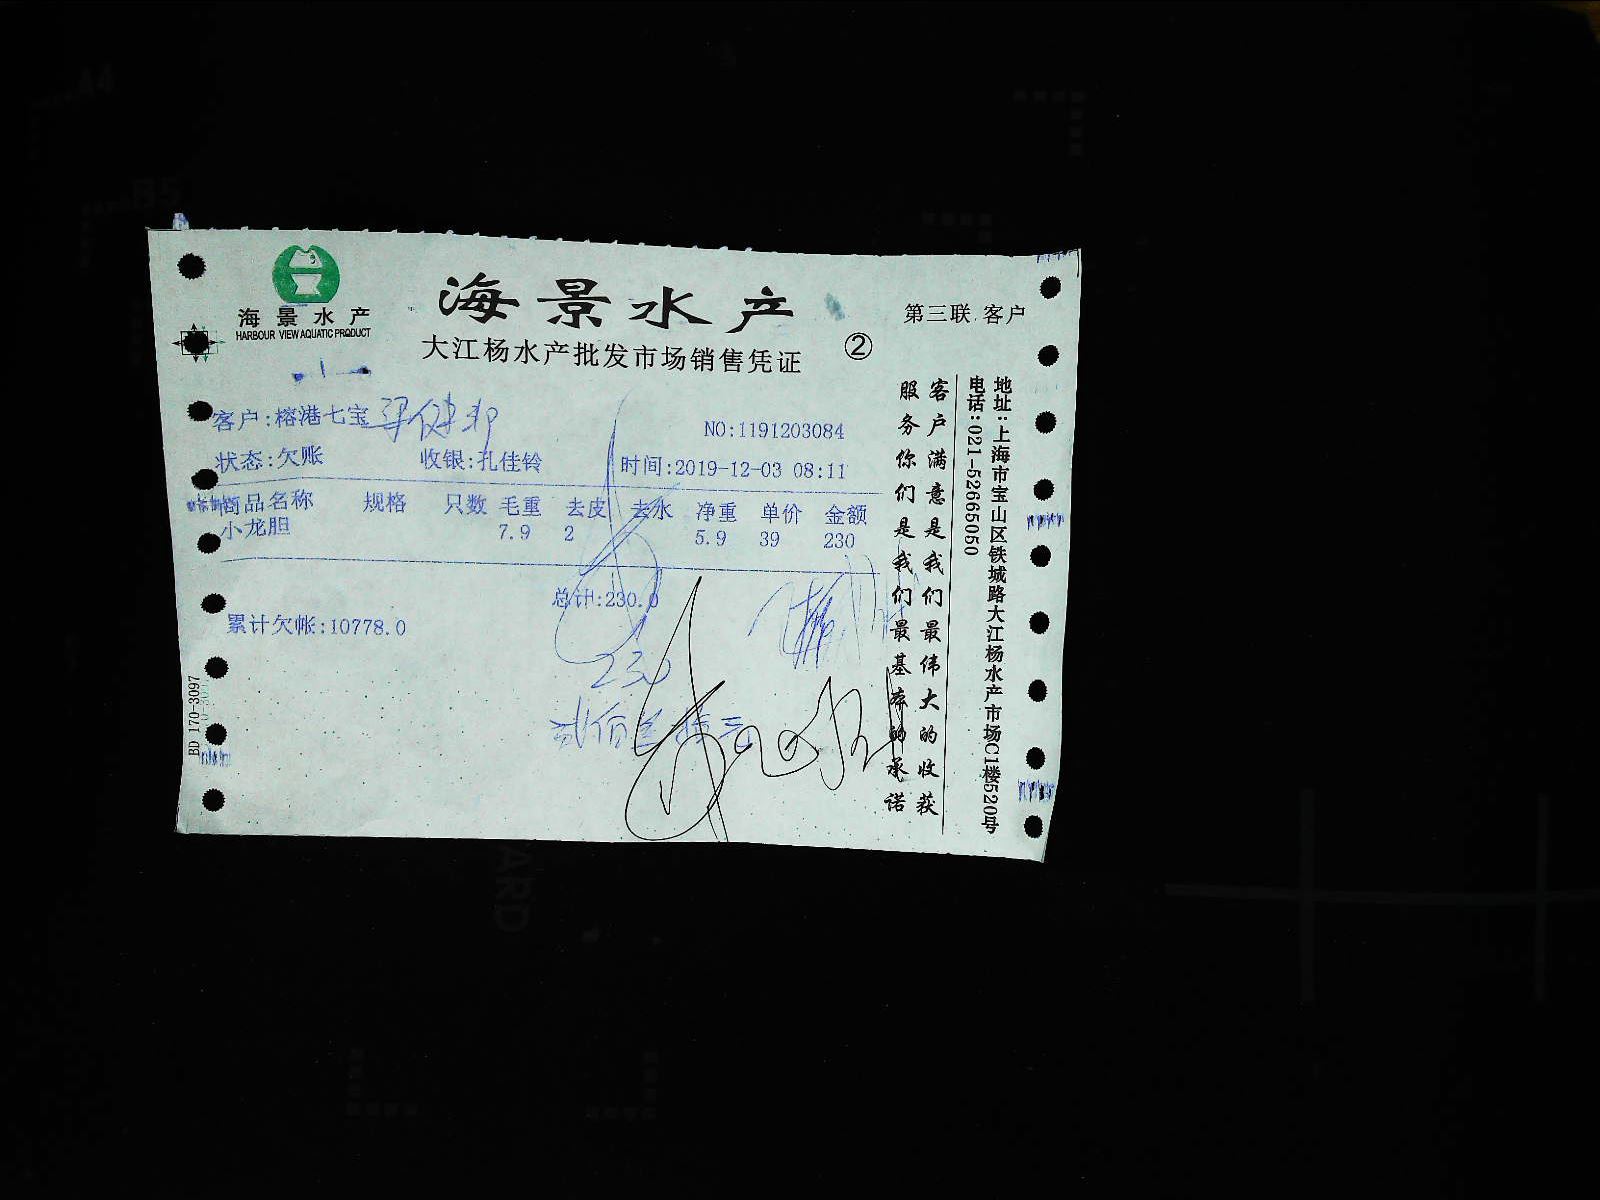 海景水产
HARBOUR VIEW AQUATIC PRODUCT
海景水产
大江杨水产批发市场销售凭证
②
第三联 客户
客户:榕港七宝
NO:1191203084
状态:欠账 收银:孔佳铃 时间:2019-12-03 08:11
商品名称 规格 只数 毛重 去皮 去水 净重 单价 金额
小龙胆 7.9 2 5.9 39 230
总计:230.0
累计欠帐:10778.0
230
BD 170-3097
客户满意是我们最伟大的收获
服务你们是我们最基本的承诺
地址:上海市宝山区铁城路大江杨水产市场C1楼520号
电话:021-52665050